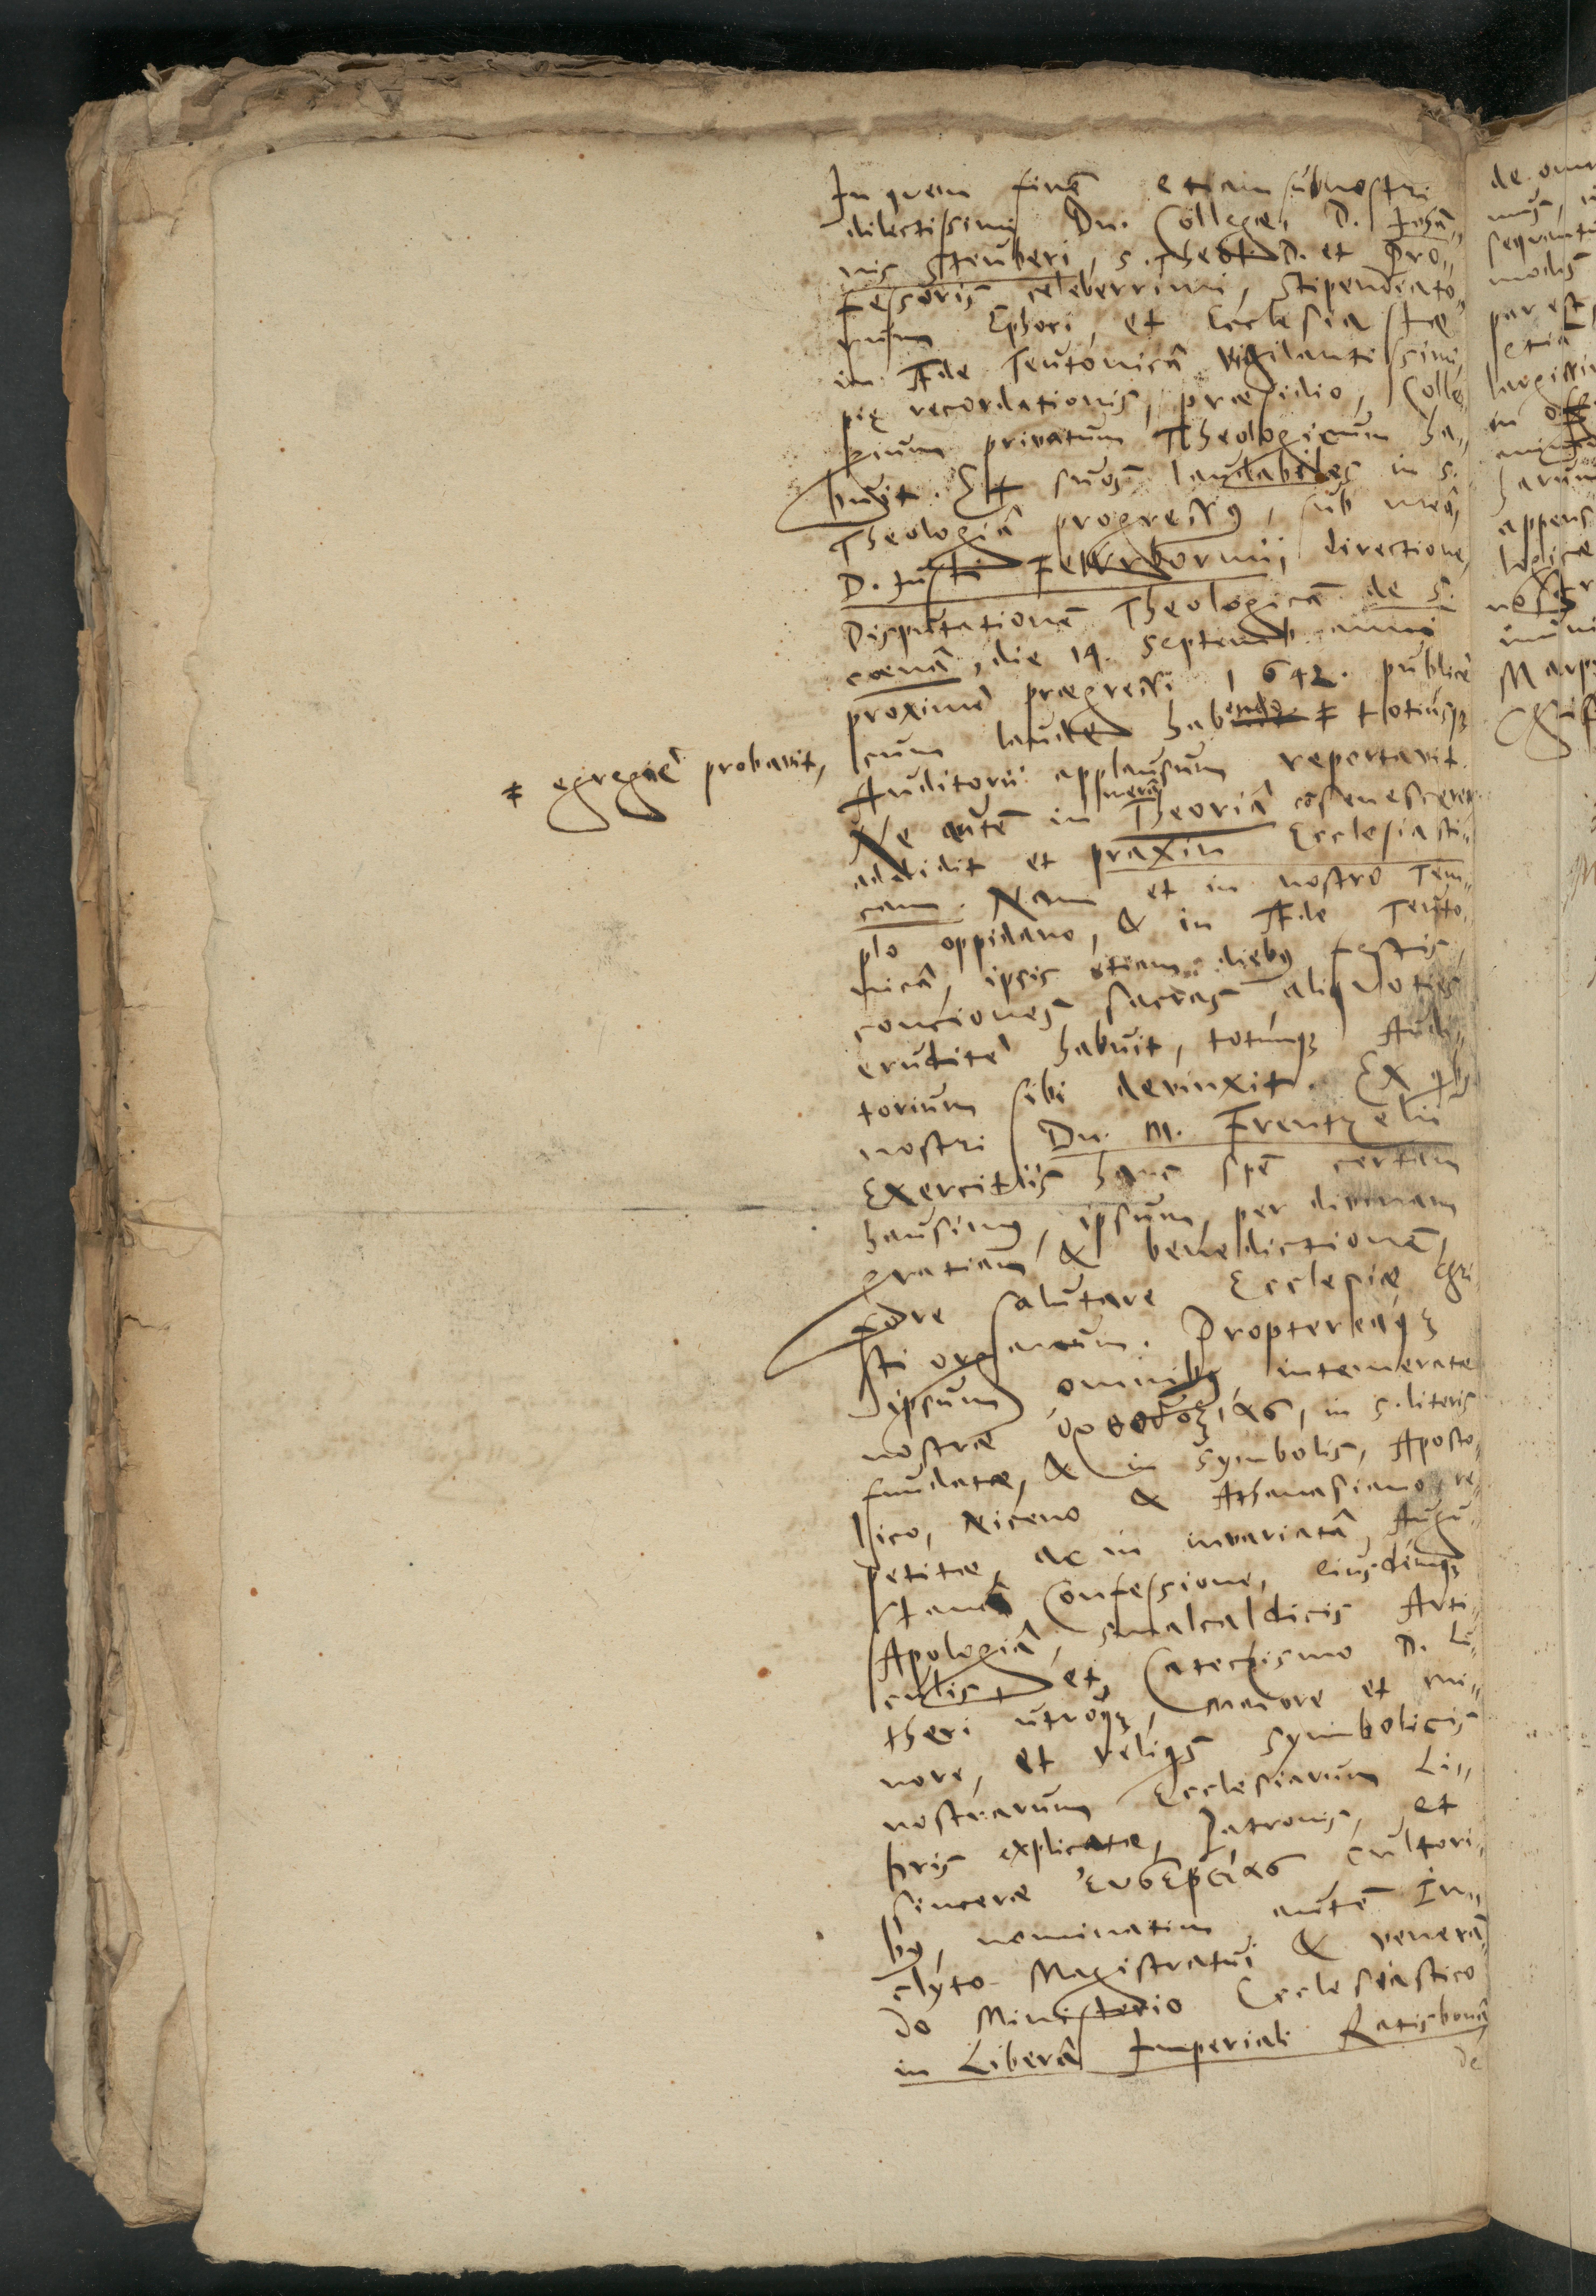 In quem finẽ etiam sub nostri
dilectissimi Dn. Collegæ, D. Johã„
nis Steuberi, S. Theol. D. et Pro„
fessoris celeberrimi, Stipendiato„
rum Ephori, et Ecclesiastæ
in Æde Teutonicâ vigilantissimi,
pię recordationis, præsidio, Colle„
gium privatum Theologicum ha„
buit. Et suos laudabiles in S.
Theologiâ progressus, sub meâ,
D. Justi Feurbornii, directione,
Disputationẽ Theologicam de S.
cœnâ, die 14. Septemb. anni
proximè prægressi 1642. publicè
cum laude habendo ‡ totiusq;
‡ egregiè probavit,
Auditorii applausum reportavit.
Ne autẽ in merâ Theoriâ cōsenesceret
addidit et praxin Ecclesiasti„
cam. Nam et in nostro Tem„
plo oppidano, & in Æde Teuto„
nicâ, ipsis etiam diebus festis,
conciones sacras aliquoties
eruditè habuit, totúmq; Audi„
torium sibi devinxit. Ex qbus
nostri Dn. M. Frentzelii
Exercitiis hanc spẽ certam
hausimus, ipsum, per divinam
gratiam & benedictionẽ,
fore salutare Ecclesiæ Chri
sti organum. Proptereaq;
ipsum omnibus intemeratæ
nostræ ὀρθοδοξίας, in S. literis
fundatæ, & in Symbolis, Aposto„
lico, Niceno & Athanasiano, re„
petitæ, ac in invariatâ Augu„
stanâ Confessione, eiusdémq;
Apologiâ, Smalcaldicis Arti„
culis et Catechismo D. Lu„
theri utroq;, maiore et mi„
nore, et reliqs symbolicis
nostrarum Ecclesiarum Li„
bris explicatæ, Patronis, et
sinceræ εὐσεβείας cultori„
bus, nominatim autẽ In„
clyto Magistratui & veneran„
do Ministerio Ecclesiastico
in Liberâ Imperiali Ratisbonâ
de